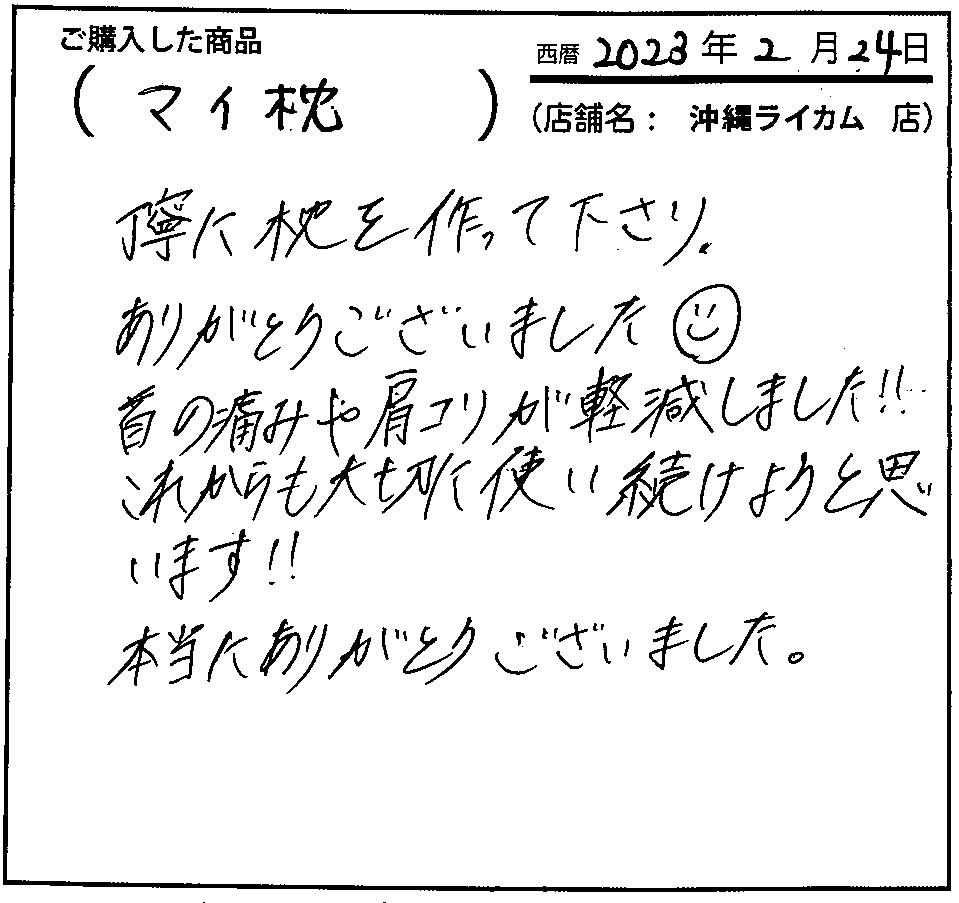 ご購入した商品
西暦 2023年2月24日
(マイ枕)
(店舗名： 沖縄ライカム 店)
丁寧に枕を作って下さり、
ありがとうございました
首の痛みや肩コリが軽減しました!!
これからも大切に使い続けようと思
います!!
本当にありがとうございました。